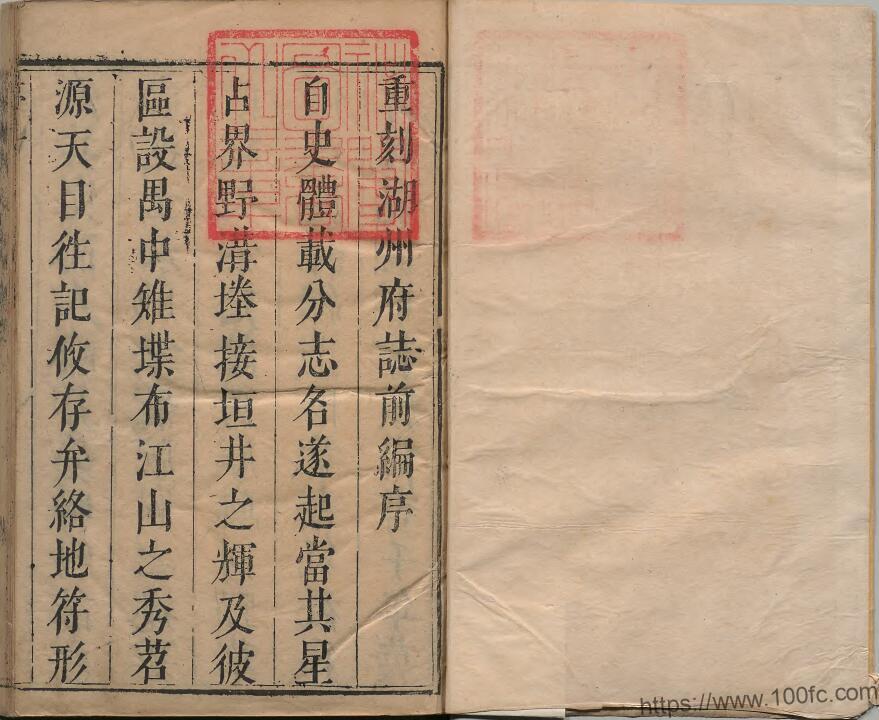 重刻湖州府誌前編序
自史體載分志名遂起當其星
占界野溝塍接垣井之輝及彼
區設禺中雉堞布江山之秀苕
源天目徃記攸存弁絡地符形
https://www.100fc.com